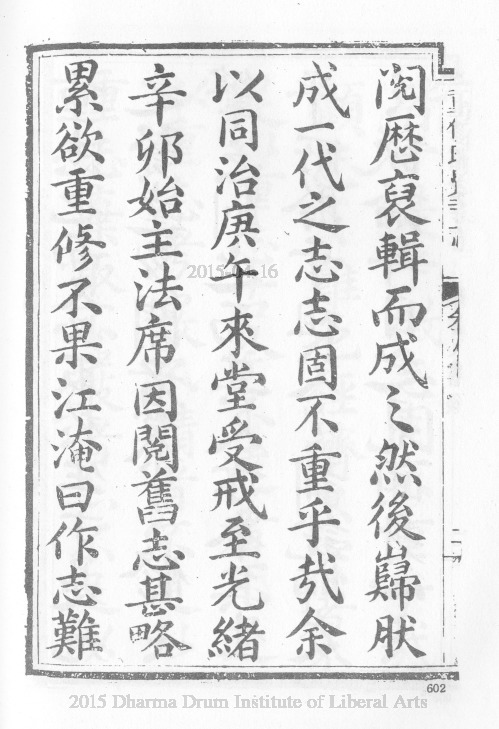 閱歷裒輯而成之然後巋肰
成一代之志志固不重乎哉余
以同治庚午來堂受戒至光緒
辛卯始主法席因閱舊志甚略
累欲重修不果江淹曰作志難
2015-04-16
602
2015 Dharma Drum Institute of Liberal Arts